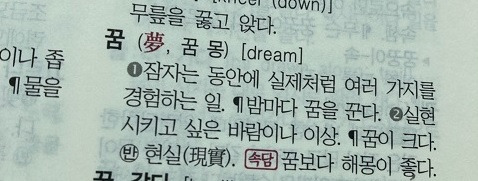 무릎을 꿇고 앉다.
꿈 (夢, 꿈 몽) [dream]
❶잠자는 동안에 실제처럼 여러 가지를
경험하는 일. ¶밤마다 꿈을 꾼다. ❷실현
시키고 싶은 바람이나 이상. ¶꿈이 크다.
㉫ 현실(現實). 속담 꿈보다 해몽이 좋다.
이나 좁
¶물을